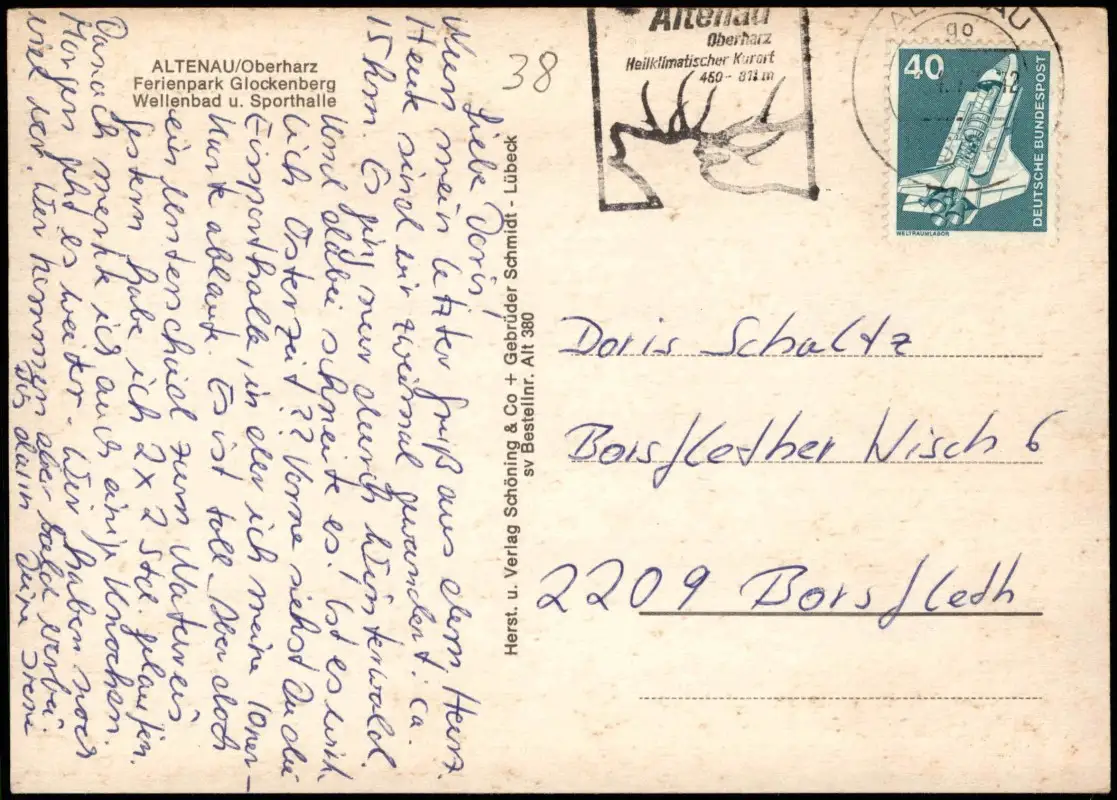 ALTENAU/Oberharz
Ferienpark Glockenberg
Wellenbad u. Sporthalle
38
Altenau
Oberharz
Heilklimatischer Kurort
450 - 811 m
ALTENAU
go
12
40
DEUTSCHE BUNDESPOST
WELTRAUMLABOR
Liebe Doris!
Nun mein letzter Gruß aus dem Harz.
Heute sind wir zweimal gewandert: ca.
15 km. Es ging nur durch Winterwald.
Und dabei schneite es! Ist es wirk
lich Osterzeit?? Vorne siehst Du die
Eissporthalle, in der ich meine 10ner-
Karte ablaufe. Es ist toll. Aber doch
ein Unterschied zum Natureis
Gestern habe ich 2x2 Std. gelaufen.
Danach merkte ich auch einige Knochen.
Morgen geht es weiter. Wir haben noch
viel vor. Wir kommen aber bald vorbei.
Bis dann Deine Irene
Herst. u. Verlag Schöning & Co + Gebrüder Schmidt - Lübeck
sv Bestellnr. Alt 380
Doris Schaltz
Borsflether Wisch 6
2209 Borsfleth